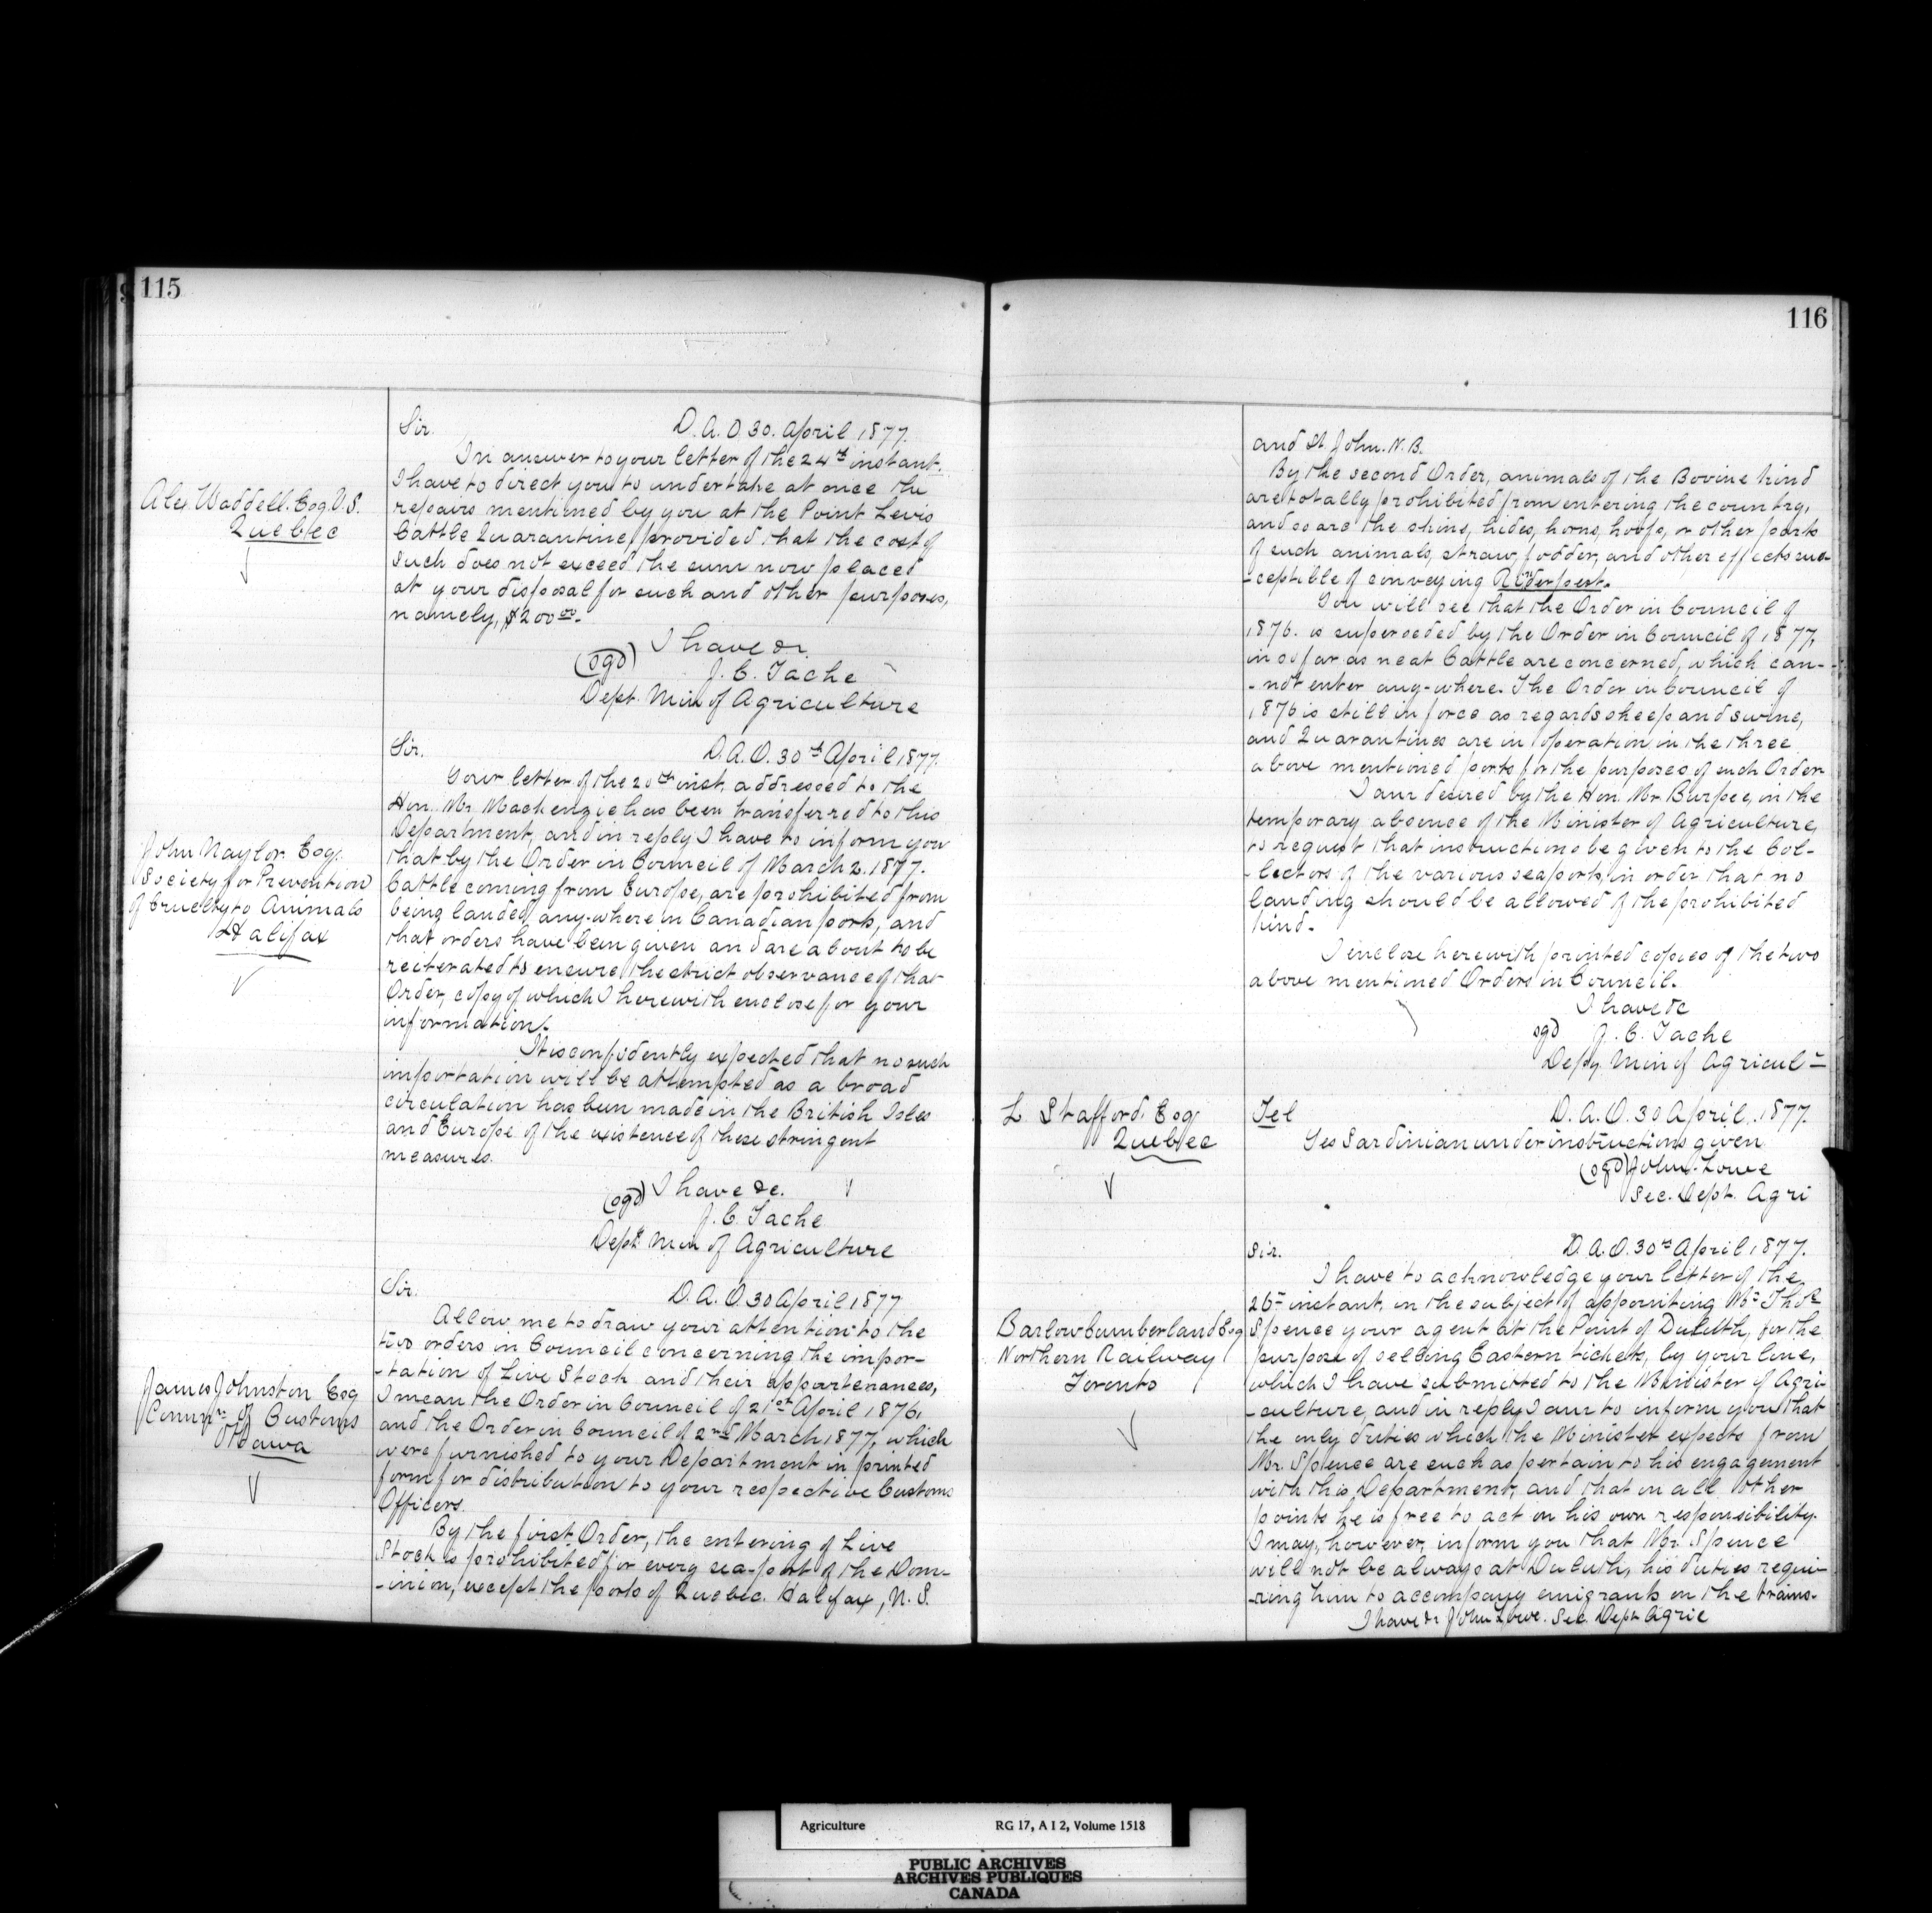 115
Sir. D. A. O 30. April 1877.
In answer to your letter of the 24th instant.
Alex Waddell. Esq. V.S.
Quebec
I have to direct you to undertake at once the
repairs mentioned by you at the Point Levis
Cattle Quarantine, provided that the cost of
such does not exceed the sum now placed
at your disposal for such and other purposes,
namely, $200 00.
I have &c.
(sgd) J. C. Tache
Dept. Min of Agriculture
Sir. D. A. O. 30th April 1877.
Your letter of the 20th inst. addressed to the
Hon. Mr. Mackenzie has been transferred to this
Department, and in reply I have to inform you
John Naylor Esq.
Society for Prevention
of Cruelty to Animals
Halifax
that by the Order in Council of March 2. 1877.
Cattle coming from Europe, are prohibited from
being landed any-where in Canadian ports, and
that orders have been given and are about to be
reiterated to ensure the strict observance of that
Order, copy of which I herewith enclose for your
information.
It is confidently expected that no such
importation will be attempted as a broad
circulation has been made in the British Isles
and Europe of the existence of these stringent
measures.
I have &c.
(sgd) J. C. Tache
Dept. Min of Agriculture
Sir. D. A. O. 30 April 1877
Allow me to draw your attention to the
two orders in Council concerning the impor-
-tation of Live Stock and their appartenances,
James Johnston Esq
Commr. of Customs
Ottawa
I mean the Order in Council of 21st April 1876,
and the Order in Council of 2nd March 1877, which
were furnished to your Department in printed
form for distribution to your respective Customs
Officers.
By the first Order, the entering of Live
Stock is prohibited for every sea-port of the Dom-
-inion, except the ports of Quebec. Halifax, N. S.
116
and St John. N. B.
By the second Order, animals of the Bovine kind
are totally prohibited from entering the country,
and so are the skins, hides, horns, hoofs, or other parts
of such animals, straw, fodder, and other effects sus-
-ceptible of conveying Rinderpest.
You will see that the Order in Council of
1876. is superseded by the Order in Council of 1877,
in so far as neat Cattle are concerned, which can-
-not enter any-where. The Order in Council of
1876 is still in force as regards sheep and swine,
and Quarantines are in operation in the three
above mentioned ports for the purposes of such Order.
I am desired by the Hon. Mr Burpee, in the
temporary absence of the Minister of Agriculture,
to request that instructions be given to the Col-
-lectors of the various seaports, in order that no
landing should be allowed of the prohibited
kind.
I enclose herewith printed copies of the two
above mentioned Orders in Council.
I have &c
sgd J. C. Tache
Depy Min of Agricul-
L Stafford Esq
Quebec
Tel D. A. O. 30 April. 1877.
Yes Sardinian under instructions given
(sgd) John Lowe
Sec. Dept. Agri
Sir. D. A. O. 30th April 1877.
I have to acknowledge your letter of the
26th instant, on the subject of appointing Mr Thos
Barlow Cumberland Esq
Northern Railway
Toronto
Spence your agent at the Point of Duluth, for the
purpose of selling Eastern tickets, by your line,
which I have submitted to the Minister of Agri-
-culture and in reply I am to inform you that
the only duties which the Minister expects from
Mr. Spence are such as pertain to his engagement
with this Department, and that in all other
points he is free to act on his own responsibility.
I may, however, inform you that Mr. Spence
will not be always at Duluth, his duties requi-
-ring him to accompany emigrants on the trains.
I have &c John Lowe. Sec. Dept Agric
Agriculture RG 17, A I 2, Volume 1518
PUBLIC ARCHIVES
ARCHIVES PUBLIQUES
CANADA